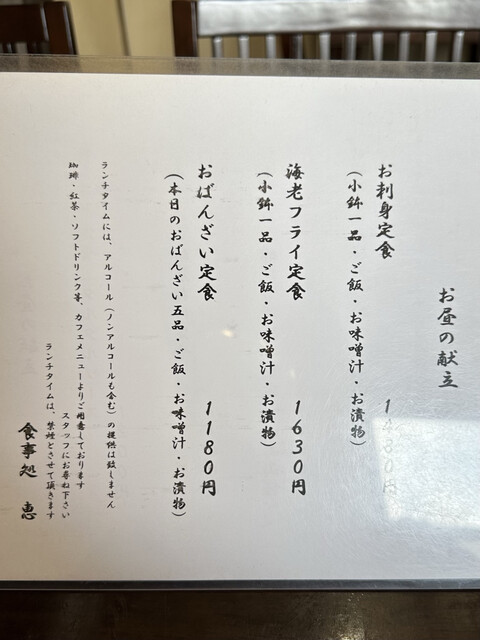 お昼の献立
お刺身定食
(小鉢一品・ご飯・お味噌汁・お漬物)
海老フライ定食 1630円
(小鉢一品・ご飯・お味噌汁・お漬物)
おばんざい定食 1180円
(本日のおばんざい五品・ご飯・お味噌汁・お漬物)
ランチタイムには、アルコール(ノンアルコールも含む)の提供は致しません
珈琲・紅茶・ソフトドリンク等、カフェメニューよりご用意しております
スタッフにお尋ね下さい
ランチタイムは、禁煙とさせて頂きます
食事処 恵